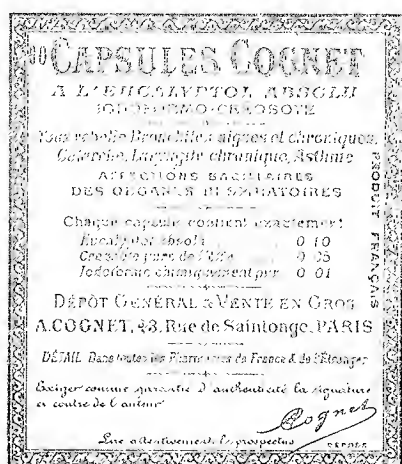 CAPSULES COGNET
A L'EUCALYPTOL ABSOLU
IODOFORMO-CRÉOSOTÉ
Toux rebelle Bronchites aigues et chroniques,
Catarrhe, Laryngite chronique, Asthme
AFFECTIONS BACILLAIRES
DES ORGANES RESPIRATOIRES
PRODUIT FRANÇAIS
Chaque capsule contient exactement
Eucalyptol absolu 0 10
Créosote pure de Hêtre 0 05
Iodoforme chimiquement pur 0 01
DÉPÔT GÉNÉRAL & VENTE EN GROS
A. COGNET, 43, Rue de Saintonge, PARIS
DÉTAIL Dans toutes les Pharmacies de France & de l'Etranger
Exiger comme garantie d'authenticité la signature
ci contre de l'auteur
Cognet
Lire attentivement le prospectus